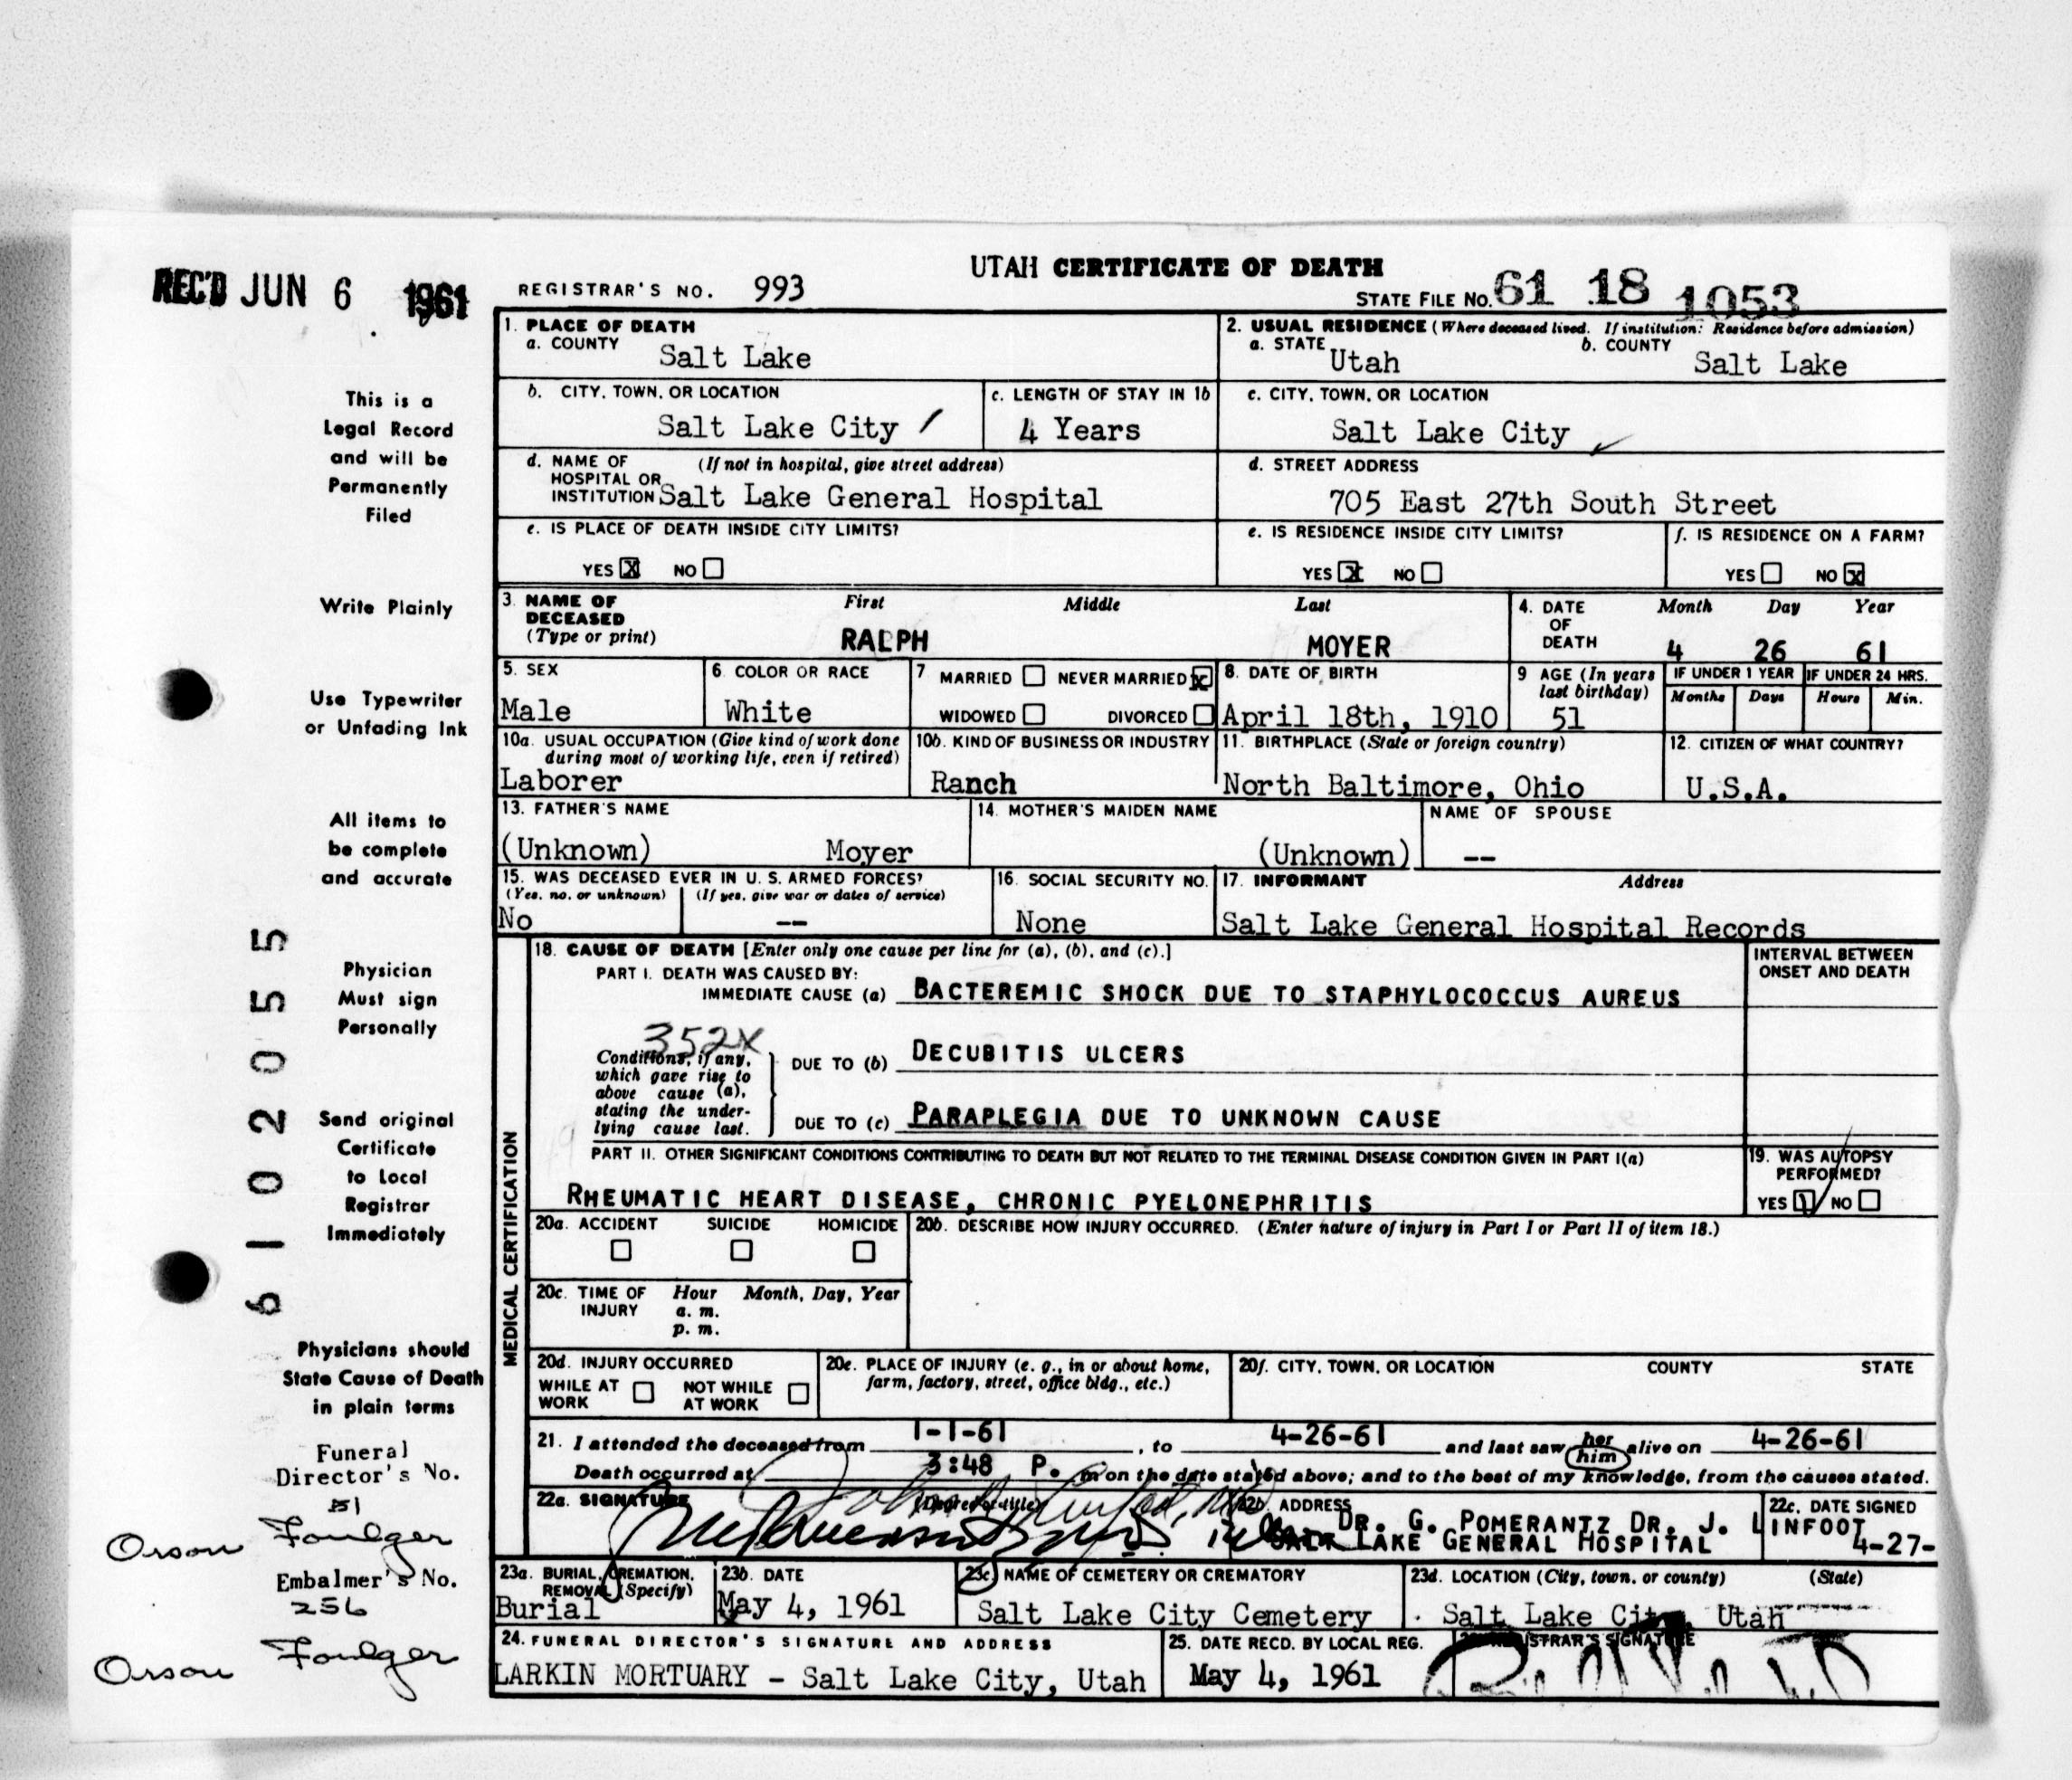 UTAH CERTIFICATE OF DEATH
REC'D JUN 6 1961
REGISTRAR'S NO. 993
STATE FILE NO. 61 18 1053
This is a
Legal Record
and will be
Permanently
Filed
Write Plainly
Use Typewriter
or Unfading Ink
All items to
be complete
and accurate
Physician
Must sign
Personally
Send original
Certificate
to Local
Registrar
Immediately
Physicians should
State Cause of Death
in plain terms
Funeral
Director's No.
51
Orson Foulger
Embalmer's No.
256
Orson Foulger
61 02055
1. PLACE OF DEATH
a. COUNTY
Salt Lake
2. USUAL RESIDENCE (Where deceased lived. If institution: Residence before admission)
a. STATE Utah b. COUNTY Salt Lake
b. CITY, TOWN, OR LOCATION
Salt Lake City
c. LENGTH OF STAY IN 1b
4 Years
c. CITY, TOWN, OR LOCATION
Salt Lake City
d. NAME OF HOSPITAL OR INSTITUTION (If not in hospital, give street address)
Salt Lake General Hospital
d. STREET ADDRESS
705 East 27th South Street
e. IS PLACE OF DEATH INSIDE CITY LIMITS?
YES X NO
e. IS RESIDENCE INSIDE CITY LIMITS?
YES X NO
f. IS RESIDENCE ON A FARM?
YES NO X
3. NAME OF DECEASED (Type or print)
First Middle Last
RALPH MOYER
4. DATE OF DEATH
Month Day Year
4 26 61
5. SEX
Male
6. COLOR OR RACE
White
7 MARRIED NEVER MARRIED X
WIDOWED DIVORCED
8. DATE OF BIRTH
April 18th, 1910
9 AGE (In years last birthday)
51
IF UNDER 1 YEAR
Months Days
IF UNDER 24 HRS.
Hours Min.
10a. USUAL OCCUPATION (Give kind of work done during most of working life, even if retired)
Laborer
10b. KIND OF BUSINESS OR INDUSTRY
Ranch
11. BIRTHPLACE (State or foreign country)
North Baltimore, Ohio
12. CITIZEN OF WHAT COUNTRY?
U.S.A.
13. FATHER'S NAME
(Unknown) Moyer
14. MOTHER'S MAIDEN NAME
(Unknown)
NAME OF SPOUSE
--
15. WAS DECEASED EVER IN U. S. ARMED FORCES?
(Yes, no, or unknown) (If yes, give war or dates of service)
No --
16. SOCIAL SECURITY NO.
None
17. INFORMANT Address
Salt Lake General Hospital Records
MEDICAL CERTIFICATION
18. CAUSE OF DEATH [Enter only one cause per line for (a), (b), and (c).]
INTERVAL BETWEEN ONSET AND DEATH
PART I. DEATH WAS CAUSED BY:
IMMEDIATE CAUSE (a) BACTEREMIC SHOCK DUE TO STAPHYLOCOCCUS AUREUS
352X
Conditions, if any, which gave rise to above cause (a), stating the underlying cause last.
DUE TO (b) DECUBITIS ULCERS
DUE TO (c) PARAPLEGIA DUE TO UNKNOWN CAUSE
PART II. OTHER SIGNIFICANT CONDITIONS CONTRIBUTING TO DEATH BUT NOT RELATED TO THE TERMINAL DISEASE CONDITION GIVEN IN PART I(a)
RHEUMATIC HEART DISEASE, CHRONIC PYELONEPHRITIS
19. WAS AUTOPSY PERFORMED?
YES NO
20a. ACCIDENT SUICIDE HOMICIDE
20b. DESCRIBE HOW INJURY OCCURRED. (Enter nature of injury in Part I or Part II of item 18.)
20c. TIME OF INJURY
Hour Month, Day, Year
a. m.
p. m.
20d. INJURY OCCURRED
WHILE AT WORK NOT WHILE AT WORK
20e. PLACE OF INJURY (e. g., in or about home, farm, factory, street, office bldg., etc.)
20f. CITY, TOWN, OR LOCATION COUNTY STATE
21. I attended the deceased from 1-1-61, to 4-26-61 and last saw her him alive on 4-26-61
Death occurred at 3:48 P. m on the date stated above; and to the best of my knowledge, from the causes stated.
22a. SIGNATURE (Degree or title)
22b. ADDRESS
DR. G. POMERANTZ DR. J. LINFOOT
SALT LAKE GENERAL HOSPITAL
22c. DATE SIGNED
4-27-
23a. BURIAL, CREMATION, REMOVAL (Specify)
Burial
23b. DATE
May 4, 1961
23c. NAME OF CEMETERY OR CREMATORY
Salt Lake City Cemetery
23d. LOCATION (City, town, or county) (State)
Salt Lake City, Utah
24. FUNERAL DIRECTOR'S SIGNATURE AND ADDRESS
LARKIN MORTUARY - Salt Lake City, Utah
25. DATE RECD. BY LOCAL REG.
May 4, 1961
REGISTRAR'S SIGNATURE